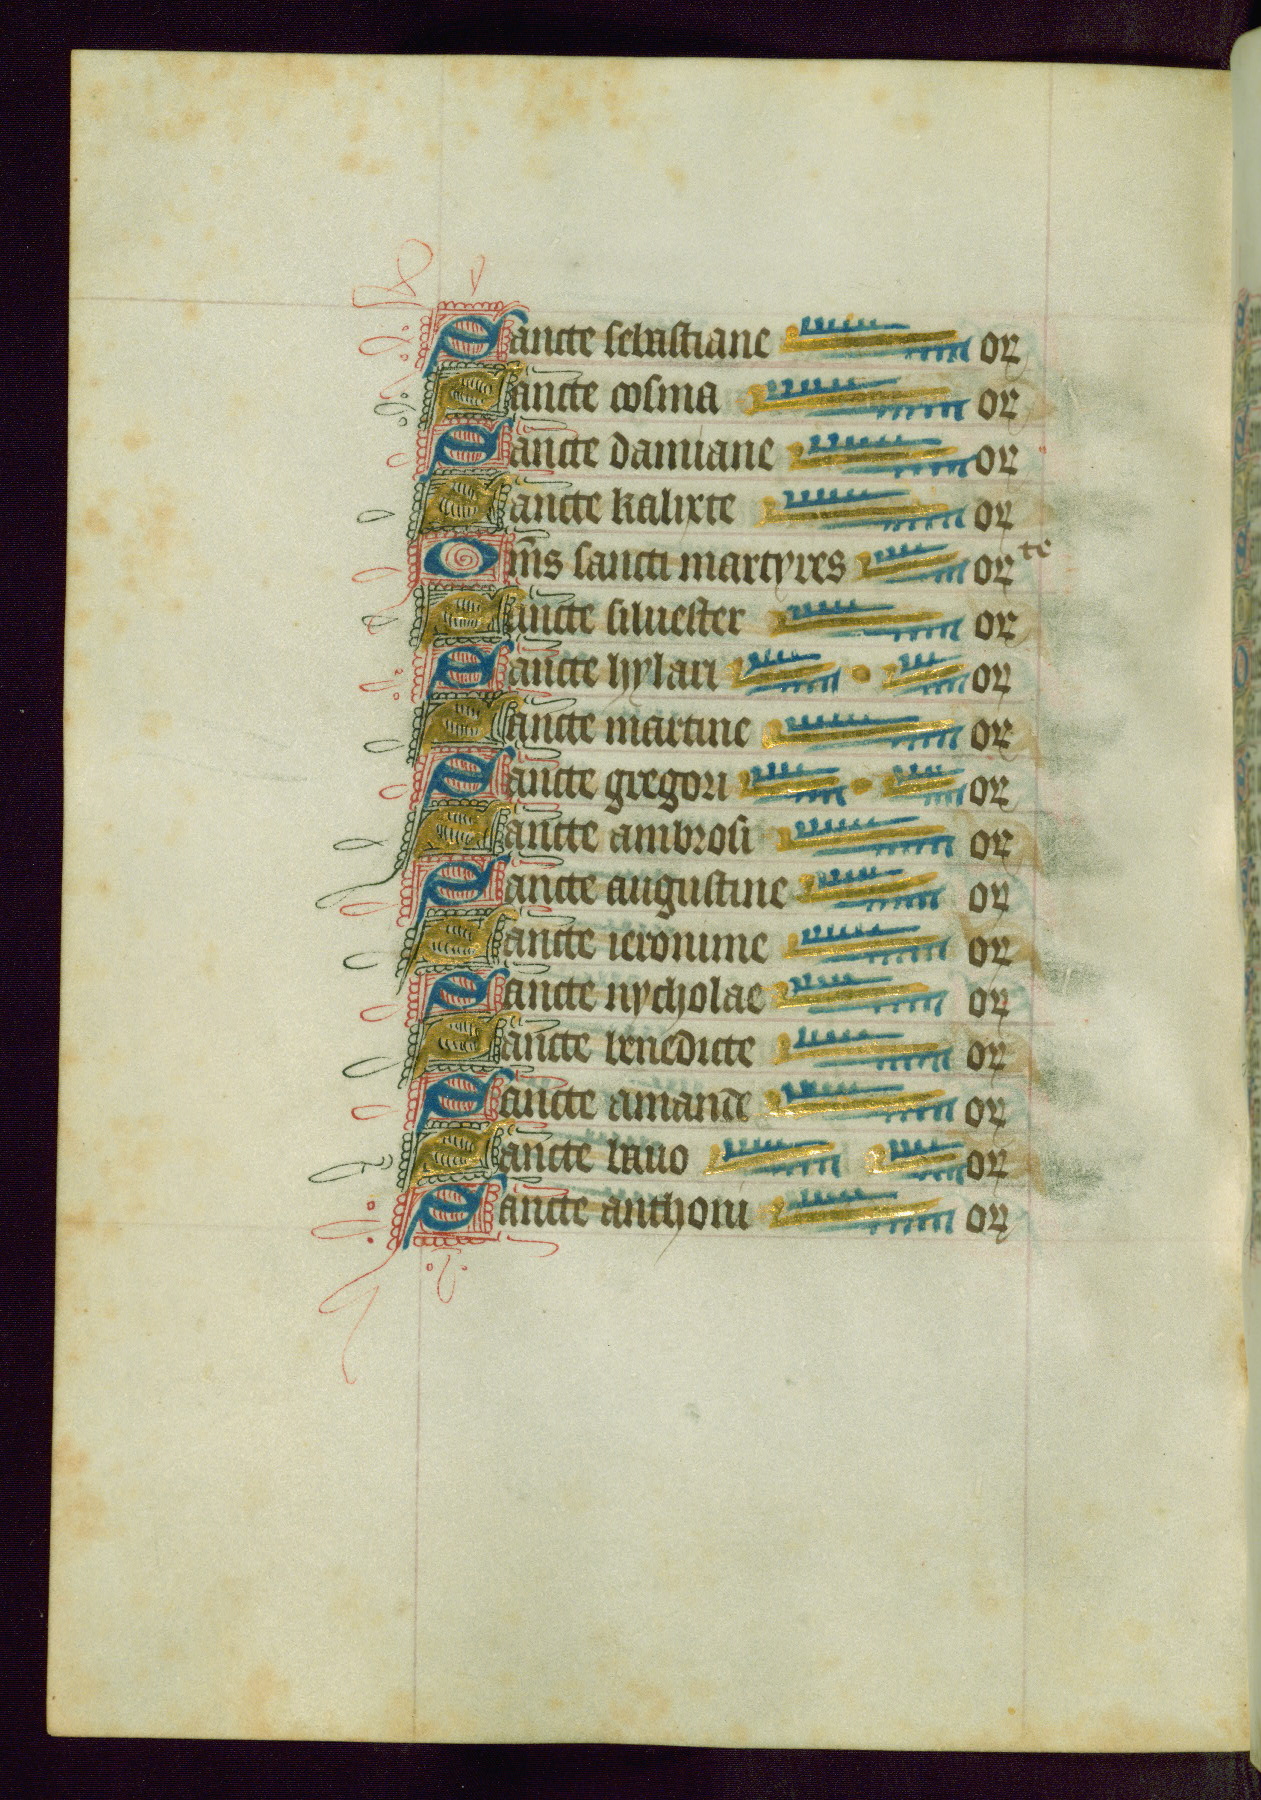 Sancte sebastiane or
Sancte cosma or
Sancte damiane or
Sancte kalixte or
Om̄s sancti martyres or te
Sancte siluester or
Sancte hylari or
Sancte martine or
Sancte gregori or
Sancte ambrosi or
Sancte augustine or
Sancte ieronime or
Sancte nycholae or
Sancte benedicte or
Sancte amande or
Sancte bauo or
Sancte anthoni or